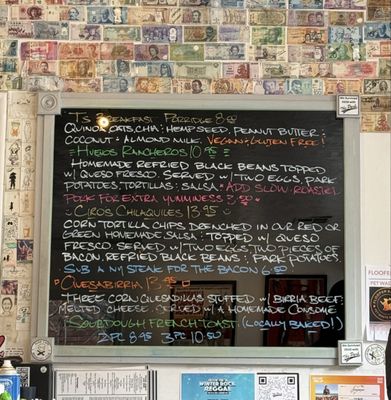 T's Breakfast Porridge 8.50
Quinoa, oats, chia, hemp seed, peanut butter,
coconut & almond milk. Vegan & Gluten Free!
Huevos Rancheros 10.95
Homemade refried black beans topped
w/ queso fresco. Served w/ two eggs, park
potatoes, tortillas & salsa. *Add slow-roasted
pork for extra yumminess 3.50*
Ciros Chilaquiles 13.95
Corn tortilla chips drenched in our red or
green homemade salsa, topped w/ queso
fresco. Served w/ two eggs, two pieces of
bacon, refried black beans & park potatoes.
Sub a NY steak for the bacon 6.50
Quesabirria 13.95
Three corn quesadillas stuffed w/ birria beef,
melted cheese. Served w/ a homemade consome
Sourdough French Toast (locally baked!)
2pc 8.95 3pc 10.50
FLOOFI
PET WA
WINTER ROCK
REGGAE